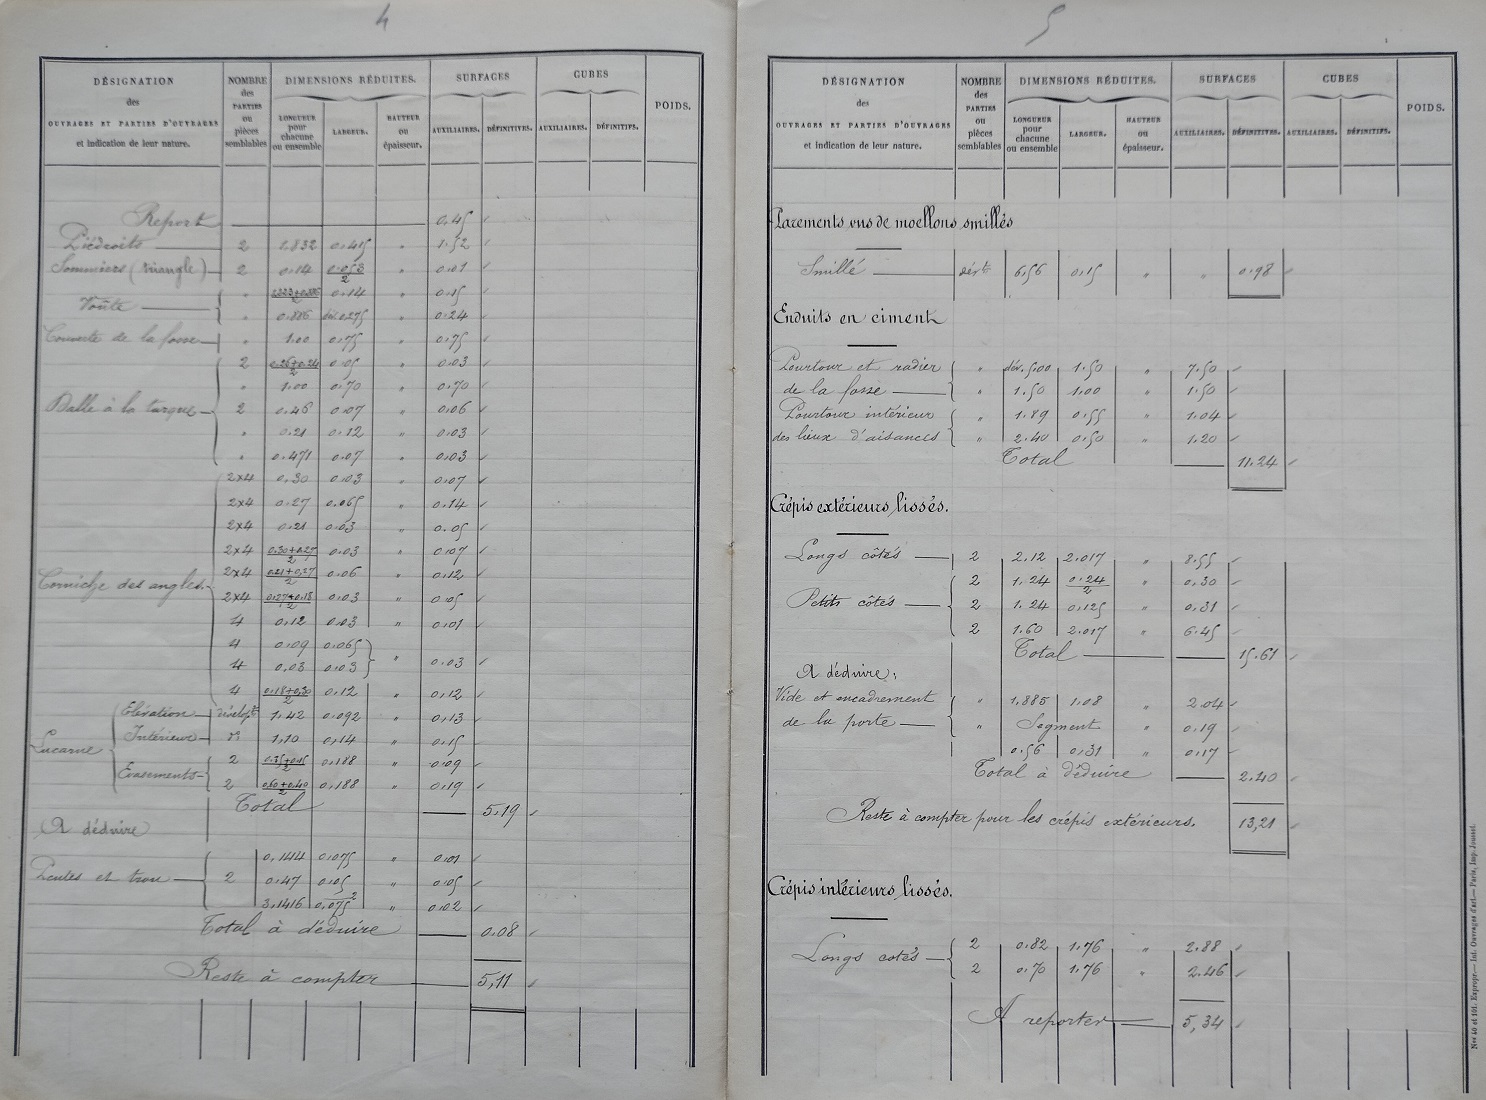 4
DÉSIGNATION des OUVRAGES ET PARTIES D'OUVRAGES et indication de leur nature.
NOMBRE des PARTIES ou pièces semblables
DIMENSIONS RÉDUITES.
LONGUEUR pour chacune ou ensemble
LARGEUR.
HAUTEUR ou épaisseur.
SURFACES
AUXILIAIRES.
DÉFINITIVES.
CUBES
AUXILIAIRES.
DÉFINITIFS.
POIDS.
Report 0.45
Piédroits 2 1.832 0.415 " 1.52
Sommiers (triangle) 2 0.14 0.053/2 " 0.01
" 0.14 " 0.15
Voûte " 0.886 0.275 " 0.24
Couverte de la fosse " 1.00 0.75 " 0.75
2 0.26+0.24/2 0.05 " 0.03
" 1.00 0.70 " 0.70
Dalle à la turque 2 0.46 0.07 " 0.06
" 0.21 0.12 " 0.03
" 0.471 0.07 " 0.03
2x4 0.30 0.03 0.07
2x4 0.27 0.065 " 0.14
2x4 0.21 0.03 " 0.05
2x4 0.30+0.27/2 0.03 " 0.07
Corniche des angles 2x4 0.21+0.27/2 0.06 " 0.12
2x4 0.27+0.18/2 0.03 " 0.05
4 0.12 0.03 " 0.01
4 0.09 0.065
4 0.03 0.03 " 0.03
4 0.18+0.30/2 0.12 " 0.12
Lucarne
Elévation dévelopt 1.42 0.092 " 0.13
Intérieur d° 1.10 0.14 " 0.15
2 0.35+0.15/2 0.188 " 0.09
Evasements 2 0.60+0.40 0.188 " 0.19
Total 5.19
A déduire
0.144 0.075 " 0.01
Pentes et trou 2 0.47 0.05 " 0.05
3.1416 0.075² " 0.02
Total à déduire 0.08
Reste à compter 5,11
5
DÉSIGNATION des OUVRAGES ET PARTIES D'OUVRAGES et indication de leur nature.
NOMBRE des PARTIES ou pièces semblables
DIMENSIONS RÉDUITES.
LONGUEUR pour chacune ou ensemble
LARGEUR.
HAUTEUR ou épaisseur.
SURFACES
AUXILIAIRES.
DÉFINITIVES.
CUBES
AUXILIAIRES.
DÉFINITIFS.
POIDS.
Parements vus de moellons smillés
Smillé dévt 6.56 0.15 " " 0.98
Enduits en ciment
Pourtour et radier " dév. 5.00 1.50 " 7.50
de la fosse " 1.50 1.00 " 1.50
Pourtour intérieur " 1.89 0.55 " 1.04
des lieux d'aisances " 2.40 0.50 " 1.20
Total 11.24
Crépis extérieurs lissés.
Longs côtés 2 2.12 2.017 " 8.55
2 1.24 0.24/2 " 0.30
Petits côtés 2 1.24 0.125 " 0.31
2 1.60 2.017 " 6.45
Total 15.61
A déduire,
Vide et encadrement " 1.885 1.08 " 2.04
de la porte " Segment " 0.19
0.56 0.31 " 0.17
Total à déduire 2.40
Reste à compter pour les crépis extérieurs. 13,21
Crépis intérieurs lissés.
Longs cotés 2 0.82 1.76 " 2.88
2 0.70 1.76 " 2.46
A reporter 5,34
Nos 40 et 101. Expropr.— Inf. Ouvrages d'art.— Paris, Imp. Jousset.